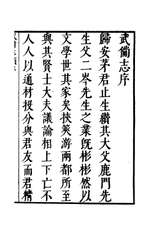 武備志序
歸安茅君止生纘其大父鹿門先
生父二岑先生之業旣彬彬然以
文學世其家矣挾筴游兩都所至
與其賢士大夫議論相上下亡不
人人以通材投分與君友而君精